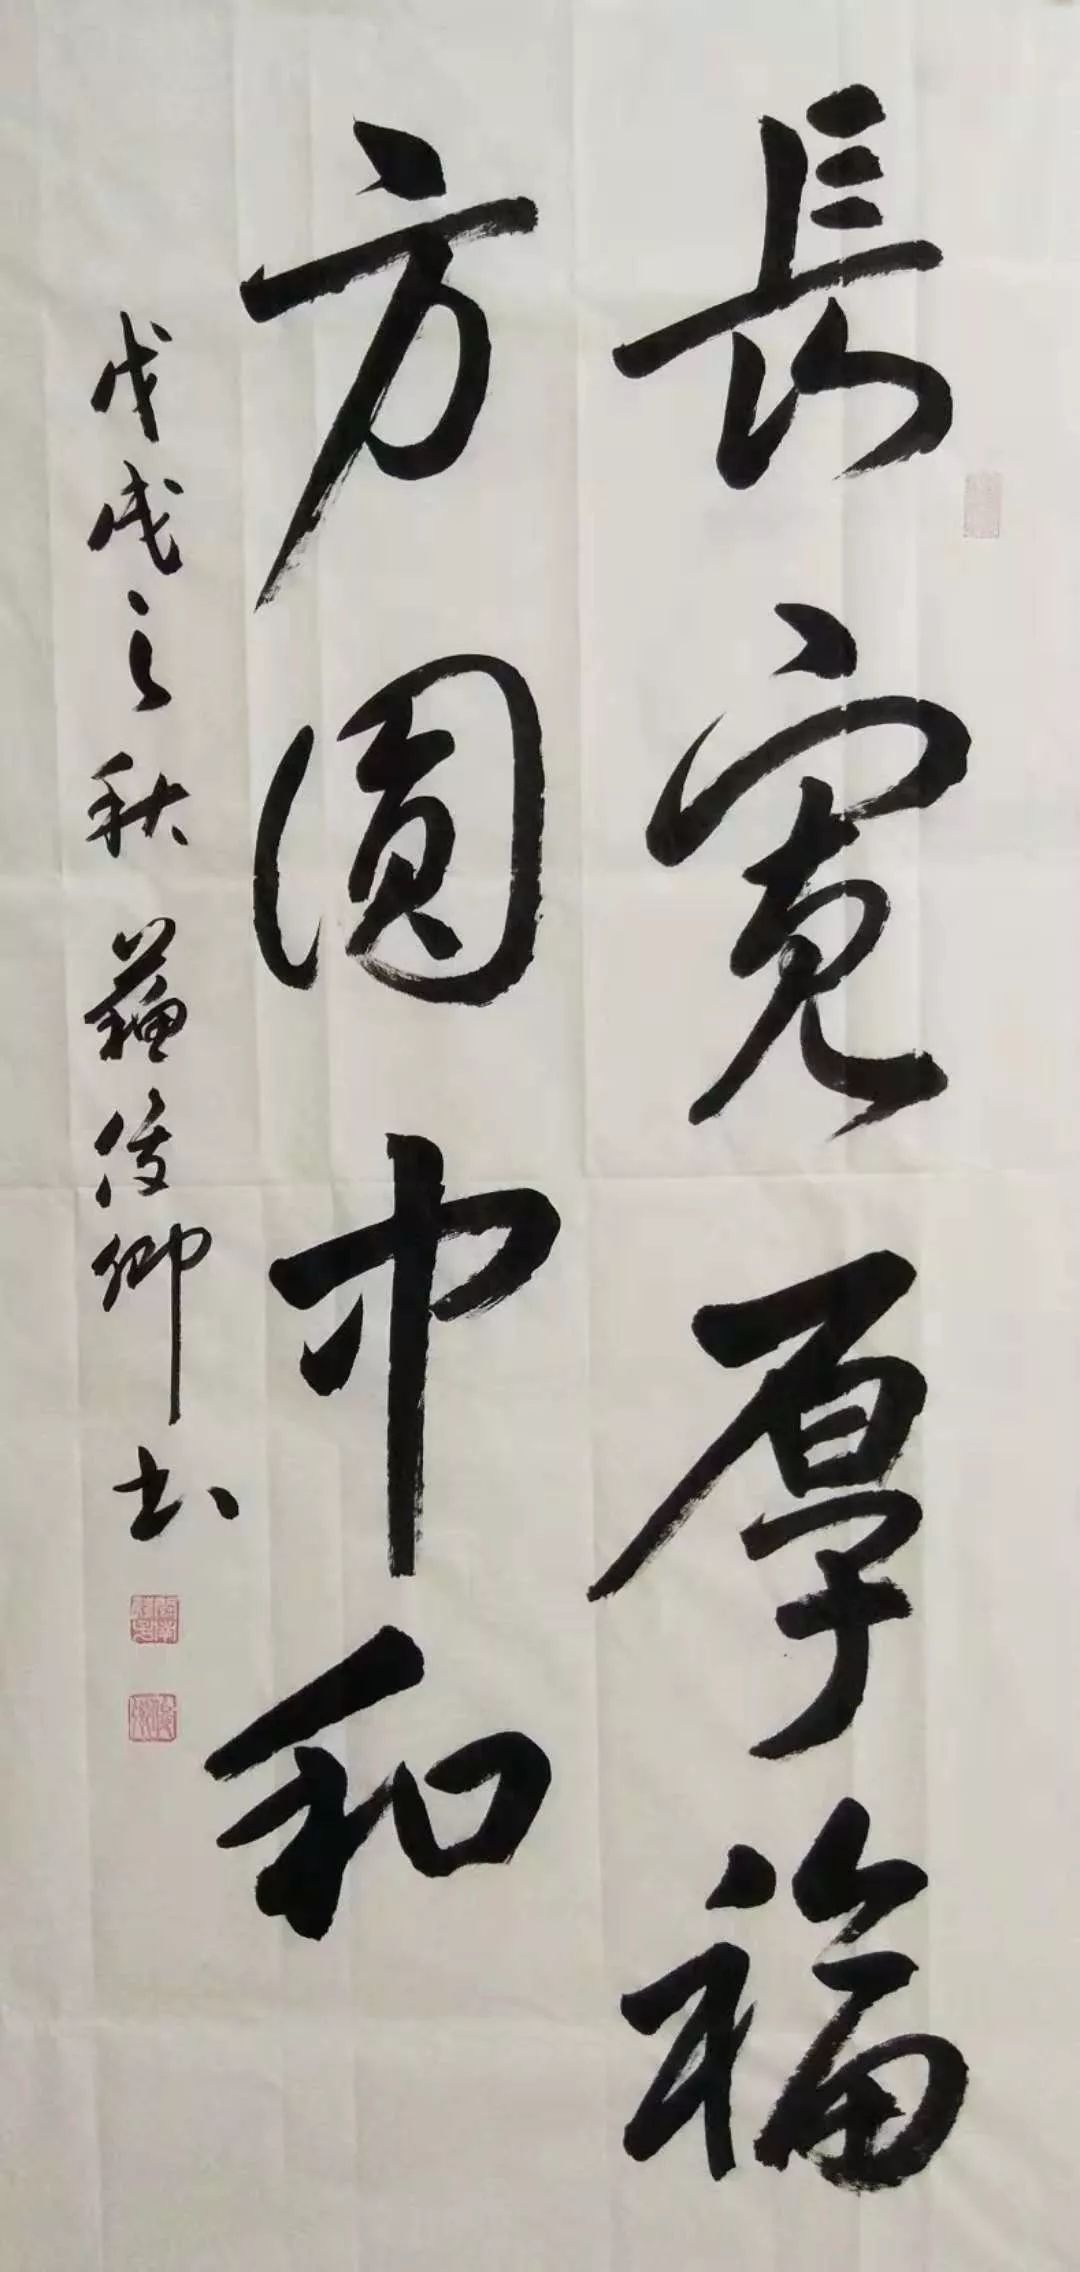 長寬厚福
方圓中和
戊戌之秋蘇俊卿书